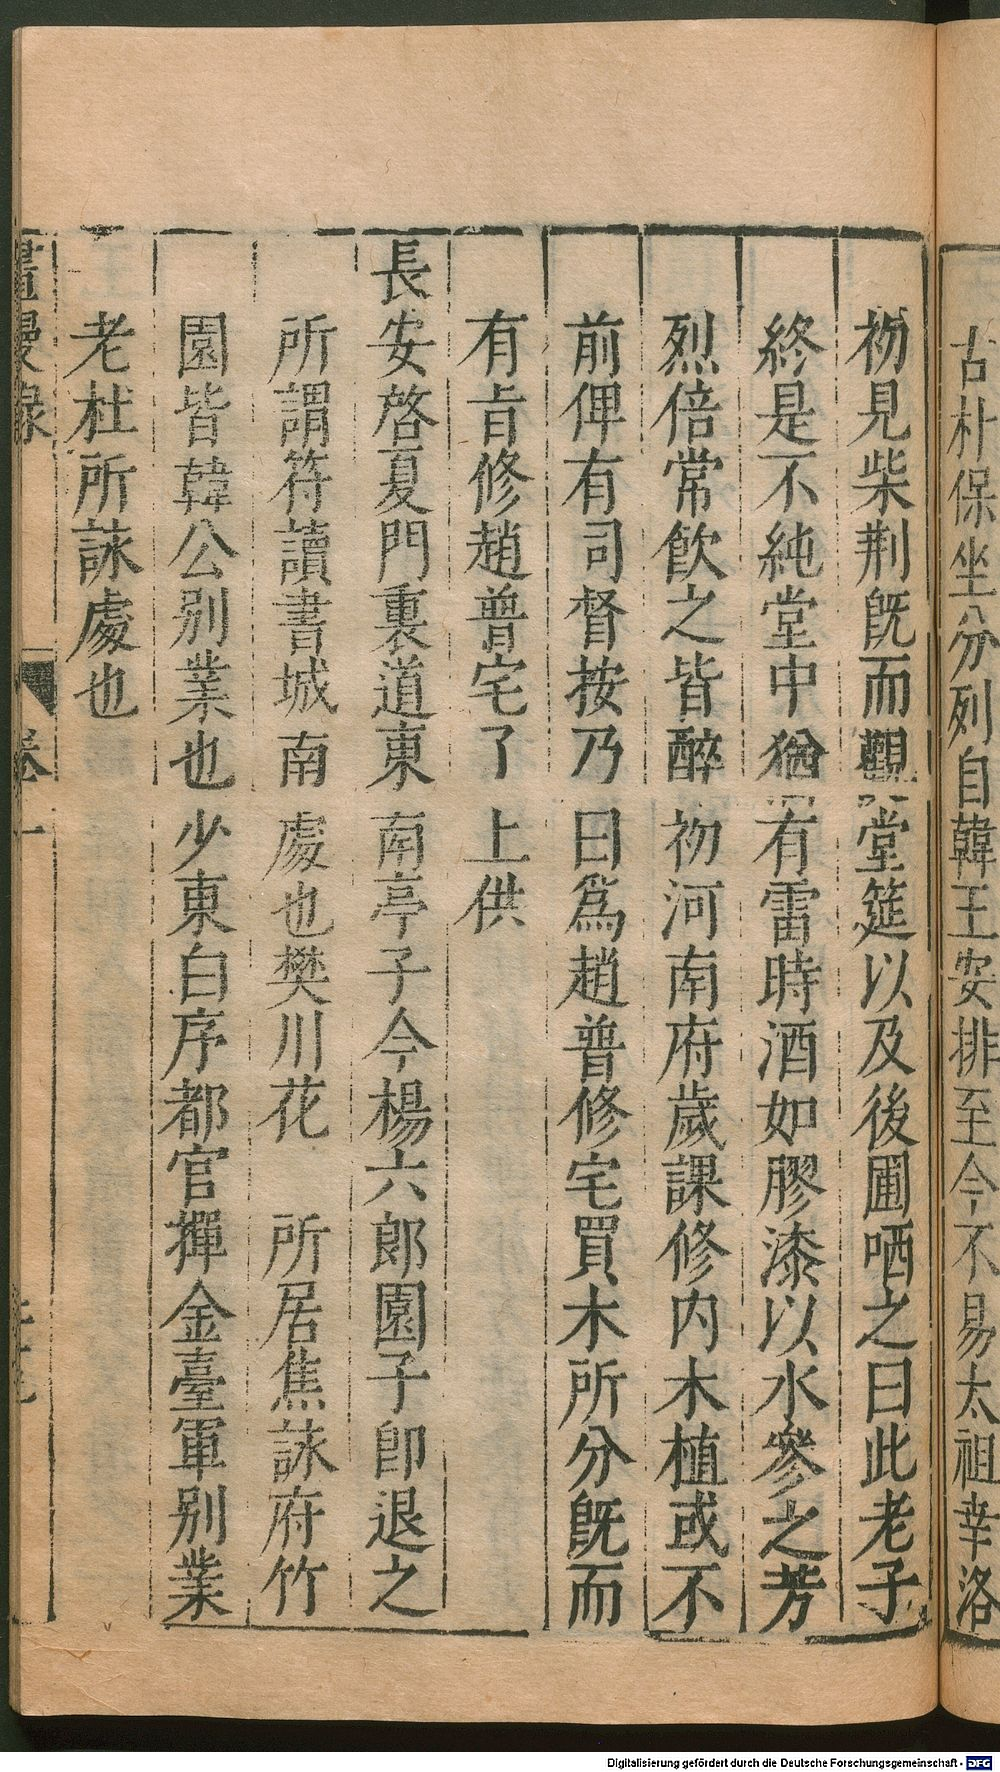 古朴保坐分列自韓王安排至今不易太祖幸洛
初見柴荆旣而觀堂筵以及後圃哂之曰此老子
終是不純堂中猶有雷時酒如膠漆以水參之芳
烈倍常飲之皆醉初河南府歲課修内木植或不
前俾有司督按乃曰爲趙普修宅買木所分旣而
有旨修趙普宅了上供
長安啓夏門裏道東南亭子今楊六郎園子卽退之
所謂符讀書城南處也樊川花 所居焦詠府竹
園皆韓公别業也少東白序都官撣金臺軍别業
老杜所詠處也
畫墁錄 卷一
Digitalisierung gefördert durch die Deutsche Forschungsgemeinschaft - DFG